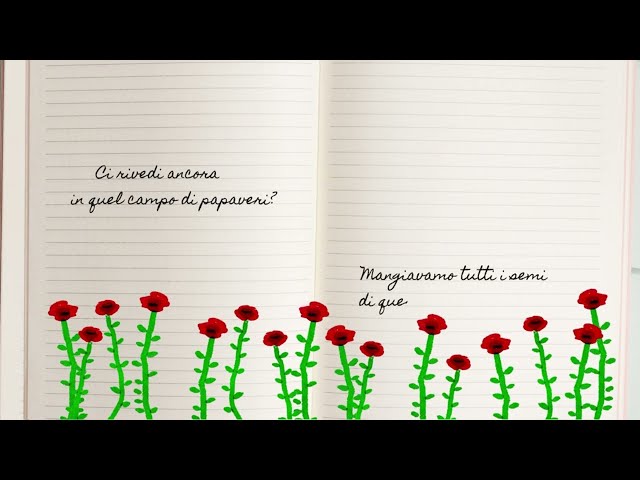 Ci rivedi ancora
in quel campo di papaveri?
Mangiavamo tutti i semi
di que